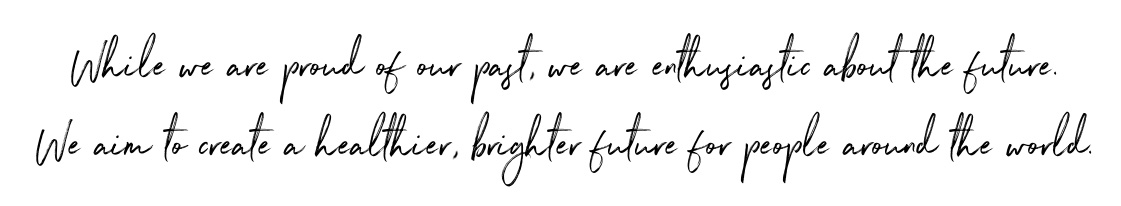 While we are proud of our past, we are enthusiastic about the future.
We aim to create a healthier, brighter future for people around the world.